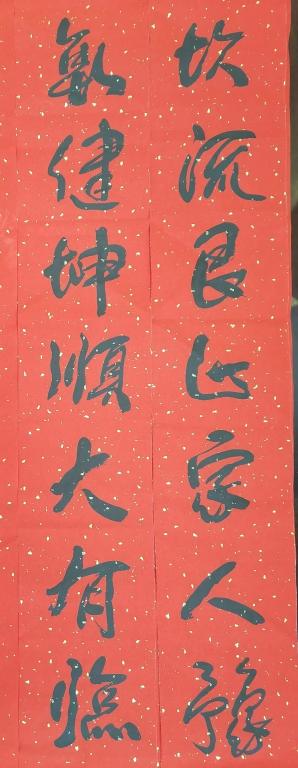 坎流艮止家人豫
乾健坤順大有臨